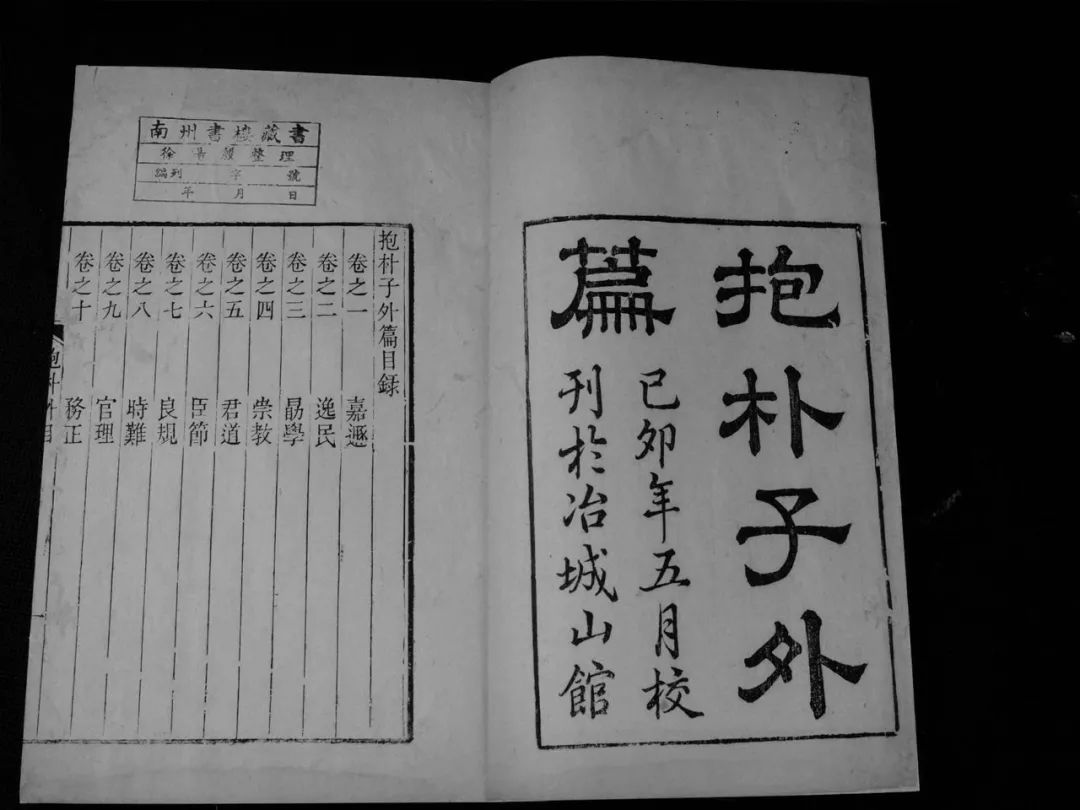 抱朴子外
篇
己卯年五月校
刊於冶城山館
南州書樓藏書
徐 整理
編列 字 號
年 月 日
抱朴子外篇目録
卷之一 嘉遯
卷之二 逸民
卷之三 勗學
卷之四 崇教
卷之五 君道
卷之六 臣節
卷之七 良規
卷之八 時難
卷之九 官理
卷之十 務正
抱朴外目